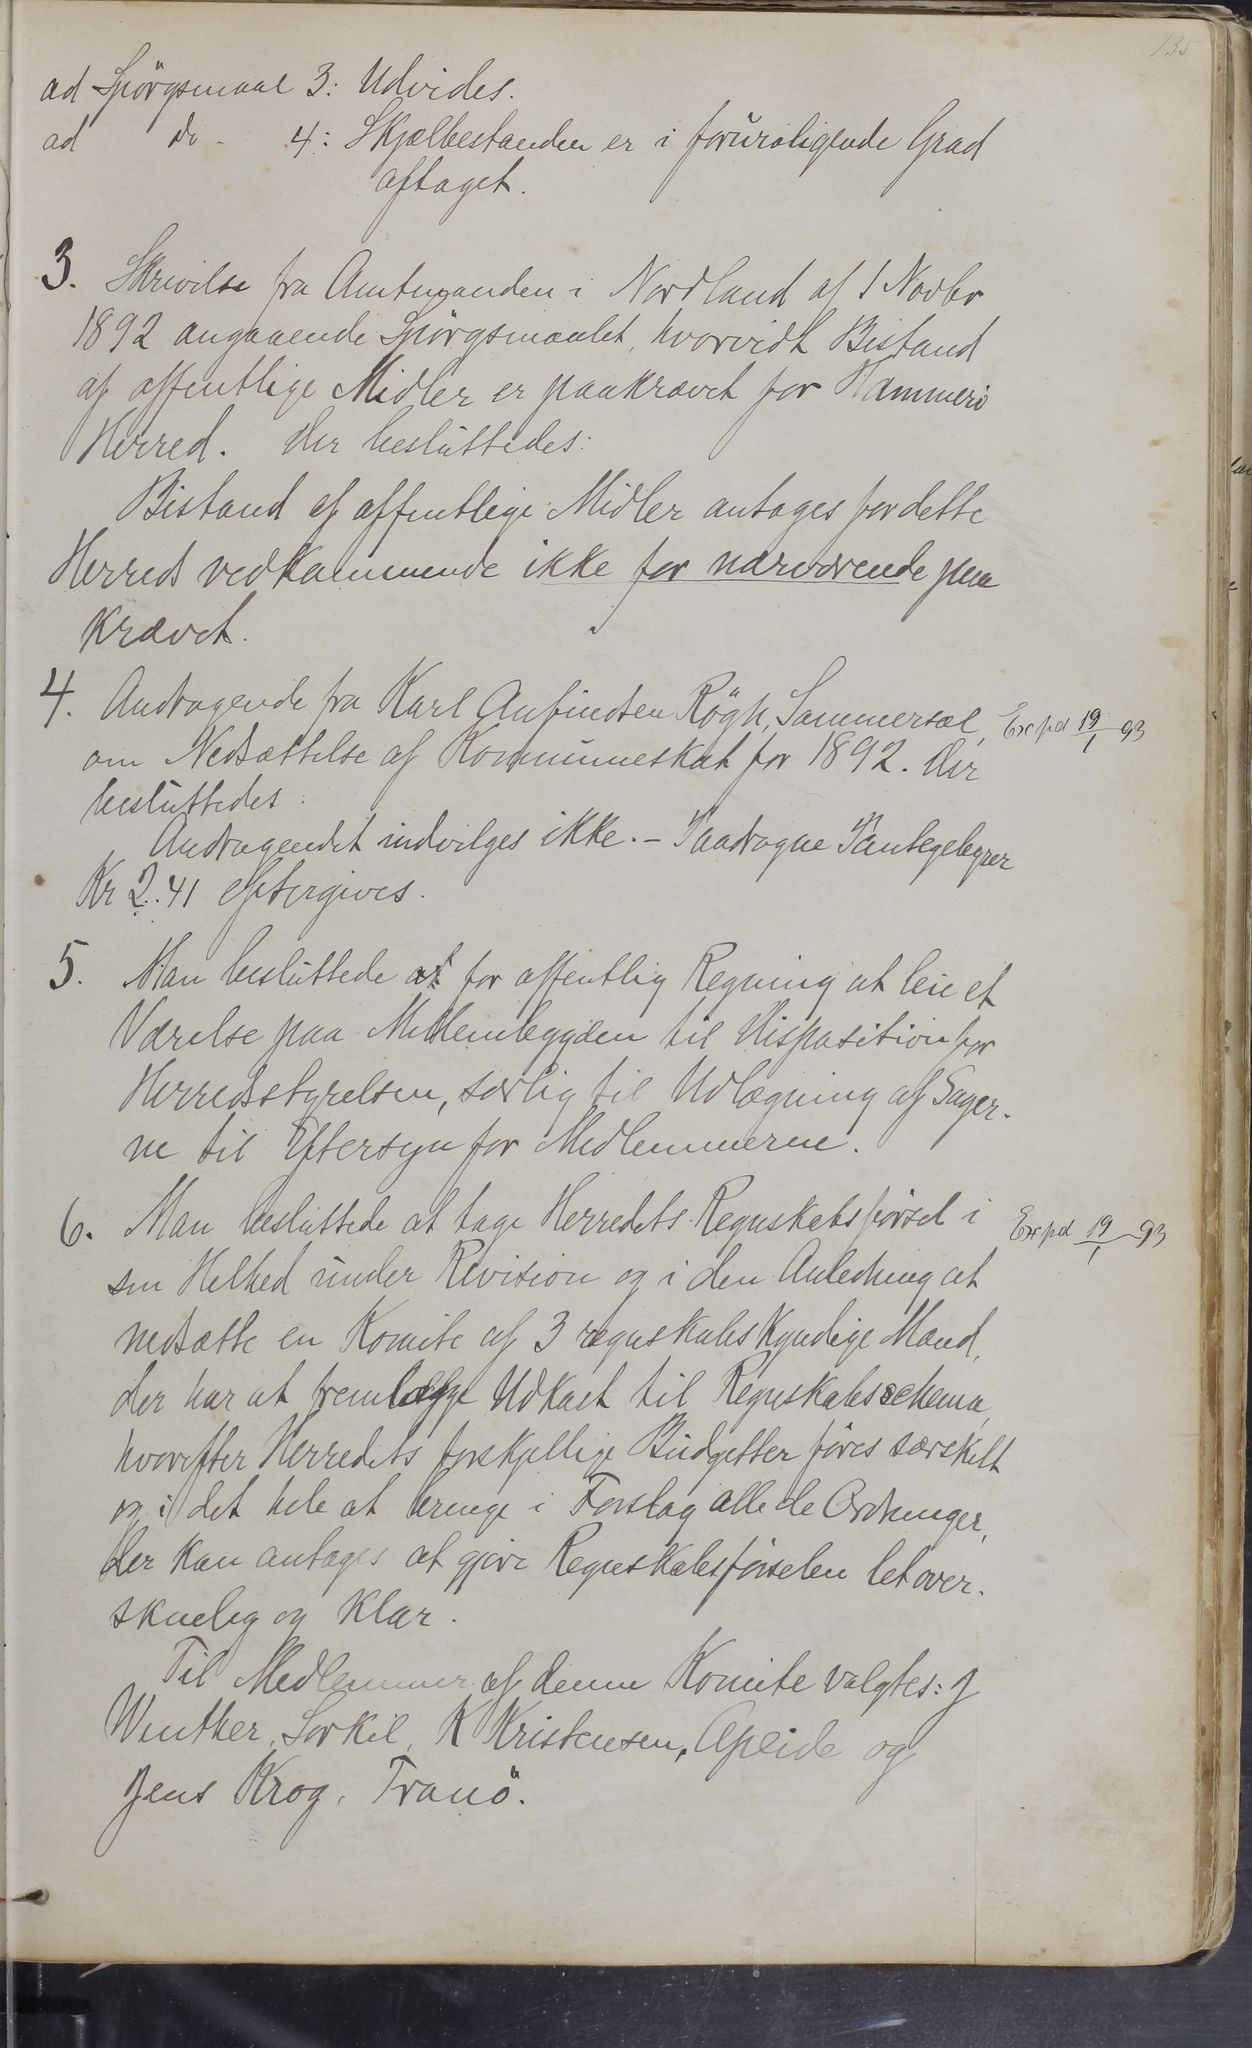 135
ad Spörgsmaal 3: Udvides.
ad do - 4: Skjælbestanden er i foruroligende Grad
aftaget.
3. Skrivelse fra Amtmanden i Nordland af 1 Novbr
1892 angaaende Spörgsmaalet, hvorvidt Bistand
af offentlige Midler er paakrævet for Hammerö
Herred. Der besluttedes:
Bistand af offentlige Midler antages for dette
Herreds vedkommende ikke for nærværende paa
krævet.
4. Andragende fra Karl Anfindsen Rögh, Sammersæl, Exped 19/1 93
om Nedsættelse af Kommuneskat for 1892. Der
besluttedes:
Andragendet indvilges ikke. - Paadragne Pantegebyrer
Kr 2.41 eftergives.
5. Man besluttede at for offentlig Regning at leie et
Værelse paa Mellembygden til Disposition for
Herredsstyrelsen, særlig til Udlægning af Sager-
ne til Eftersyn for Medlemmerne.
6. Man besluttede at tage Herredets Regnskabsförsel i Exped 19/1 93
sin Helhed under Revision og i den Anledning at
nedsætte en Komite af 3 regnskabskyndige Mænd,
der har at fremlægge Udkast til Regnskabsschema,
hvorefter Herredets forskjellige Budgetter föres særskilt
og i det hele at bringe i Forslag alle de Ordninger,
der kan antages at gjöre Regnskabsförselen letover-
skuelig og klar.
Til Medlemmer af denne Komite valgtes: J
Winther, Sorkil, K Kristensen, Apeide og
Jens Krog, Tranö.